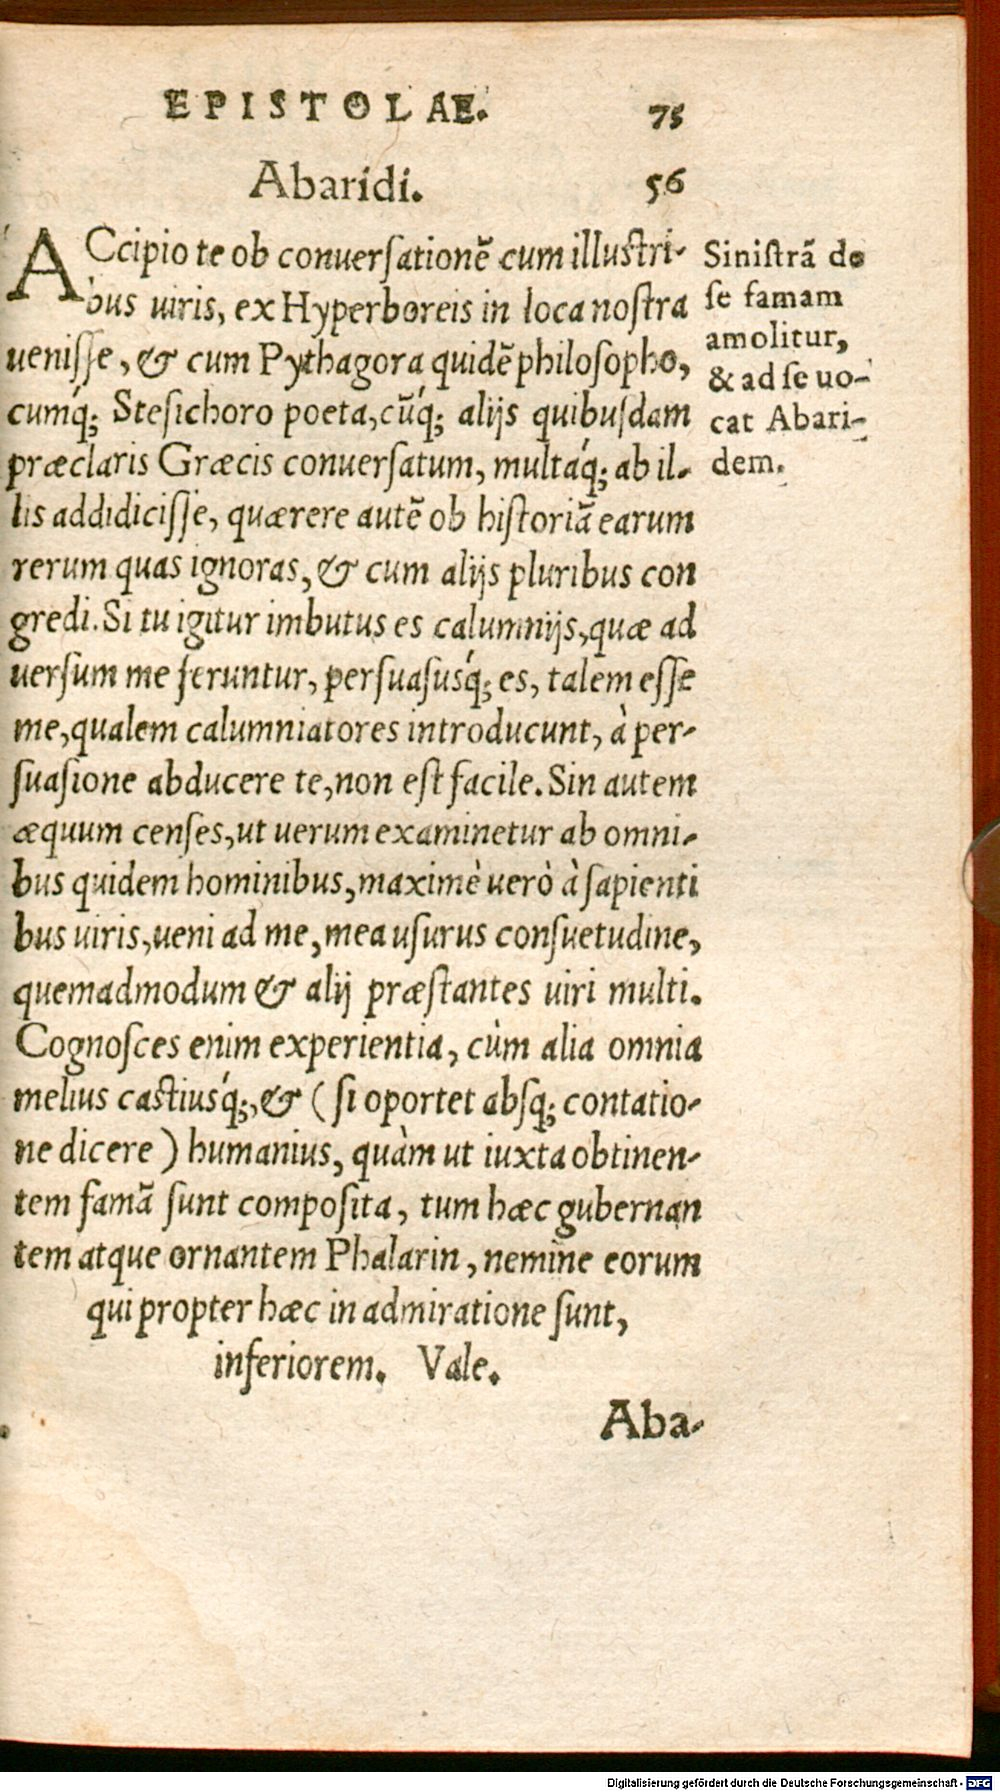 EPISTOLAE. 75
Abaridi. 56
ACcipio te ob conuersationē cum illustri-
bus uiris, ex Hyperboreis in loca nostra
uenisse, & cum Pythagora quidē philosopho,
cumq́; Stesichoro poeta, cūq́; alijs quibusdam
præclaris Græcis conuersatum, multaq́; ab il-
lis addidicisse, quærere autē ob historiā earum
rerum quas ignoras, & cum alijs pluribus con
gredi. Si tu igitur imbutus es calumnijs, quæ ad
uersum me feruntur, persuasusq́; es, talem esse
me, qualem calumniatores introducunt, à per-
suasione abducere te, non est facile. Sin autem
æquum censes, ut uerum examinetur ab omni-
bus quidem hominibus, maximè uerò à sapienti
bus uiris, ueni ad me, mea usurus consuetudine,
quemadmodum & alij præstantes uiri multi.
Cognosces enim experientia, cùm alia omnia
melius castiusq́;, & (si oportet absq; contatio-
ne dicere) humanius, quàm ut iuxta obtinen-
tem famā sunt composita, tum hæc gubernan
tem atque ornantem Phalarin, nemine eorum
qui propter hæc in admiratione sunt,
inferiorem. Vale.
Aba-
Sinistrā de
se famam
amolitur,
& ad se uo-
cat Abari-
dem.
Digitalisierung gefördert durch die Deutsche Forschungsgemeinschaft - DFG